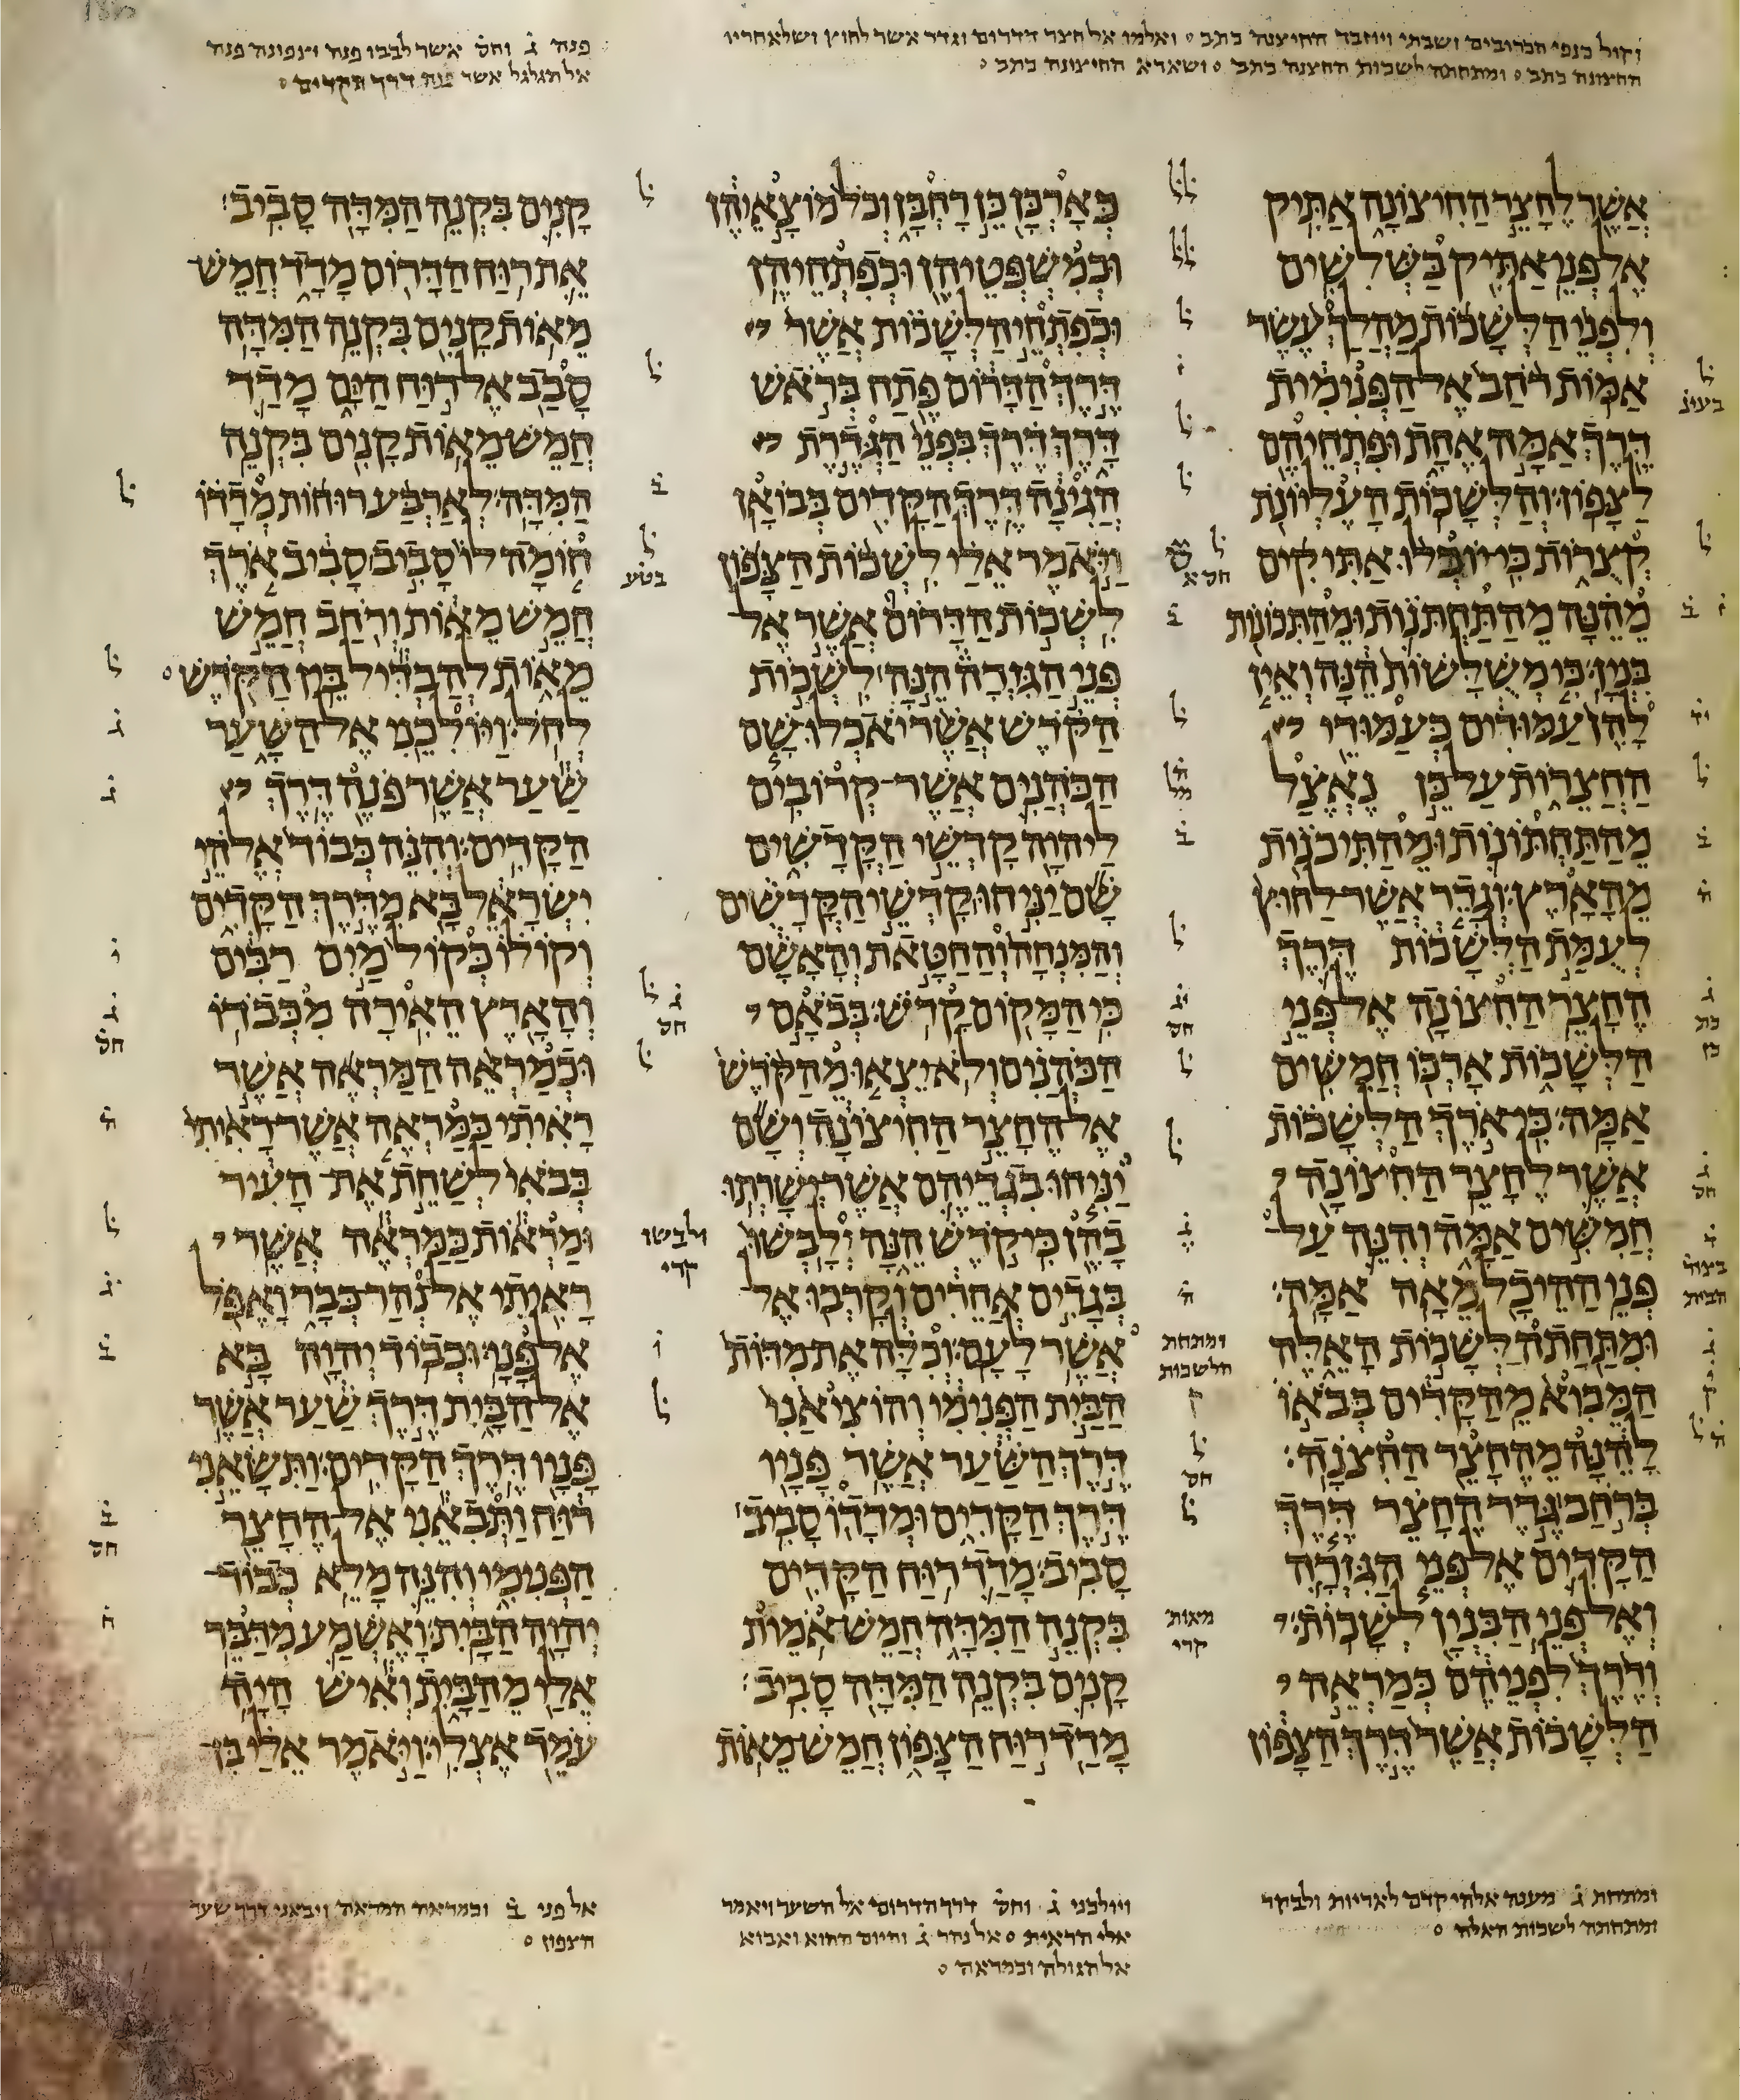 וקול כנפי הכרובים ושבתי ויוזבד החיצנה כתב ואלמו אל חצר הדרום וגדר אשר לחוץ ושלאחריו
החצונה כתב ומתחתה לשכות החצנה כתב ושארא החיצונה כתב
פנה ג וחס אשר לבבו פנה וצפונה פנה
אל הגלגל אשר פנה דרך הקדים
אֲשֶׁר לֶחָצֵר הַחִיצוֹנָה אַתִּיק
אֶל פְּנֵי אַתִּיק בַּשְּׁלִשִׁים
וְלִפְנֵי הַלְּשָׁכוֹת מַהֲלַךְ עֶשֶׂר
אַמּוֹת רֹחַב אֶל הַפְּנִימִית
דֶּרֶךְ אַמָּה אֶחָת וּפִתְחֵיהֶם
לַצָּפוֹן׃ וְהַלְּשָׁכוֹת הָעֶלְיוֹנֹת
קְצֻרוֹת כִּי יוֹכְלוּ אַתִּיקִים
מֵהֵנָּה מֵהַתַּחְתֹּנוֹת וּמֵהַתִּכוֹנוֹת
בִּנְיָן׃ כִּי מְשֻׁלָּשׁוֹת הֵנָּה וְאֵין
לָהֶן עַמּוּדִים כְּעַמּוּדֵי
הַחֲצֵרוֹת עַל כֵּן נֶאֱצַל
מֵהַתַּחְתּוֹנוֹת וּמֵהַתִּיכֹנוֹת
מֵהָאָרֶץ׃ וְגָדֵר אֲשֶׁר לַחוּץ
לְעֻמַּת הַלְּשָׁכוֹת דֶּרֶךְ
הֶחָצֵר הַחִצוֹנָה אֶל פְּנֵי
הַלְּשָׁכוֹת אָרְכּוֹ חֲמִשִּׁים
אַמָּה׃ כִּי אֹרֶךְ הַלְּשָׁכוֹת
אֲשֶׁר לֶחָצֵר הַחִצוֹנָה
חֲמִשִּׁים אַמָּה וְהִנֵּה עַל
פְּנֵי הַהֵיכָל מֵאָה אַמָּה׃
וּמִתַּחַתָה לְשָׁכוֹת הָאֵלֶּה
הַמֵּבִוא מֵהַקָּדִים בְּבֹאוֹ
לָהֵנָּה מֵהֶחָצֵר הַחִצֹנָה׃
בְּרֹחַב גֶּדֶר הֶחָצֵר דֶּרֶךְ
הַקָּדִים אֶל פְּנֵי הַגִּזְרָה
וְאֶל פְּנֵי הַבִּנְיָן לְשָׁכוֹת׃
וְדֶרֶךְ לִפְנֵיהֶם כְּמַרְאֵה
הַלְּשָׁכוֹת אֲשֶׁר דֶּרֶךְ הַצָּפוֹן
כְּאָרְכָּן כֵּן רָחְבָּן וְכֹל מוֹצָאֵיהֶן
וּכְמִשְׁפְּטֵיהֶן וּכְפִתְחֵיהֶן
וּכְפִתְחֵי הַלְּשָׁכוֹת אֲשֶׁר
דֶּרֶךְ הַדָּרוֹם פֶּתַח בְּרֹאשׁ
דָּרֶךְ דֶּרֶךְ בִּפְנֵי הַגְּדֶרֶת
הֲגִינָה דֶּרֶךְ הַקָּדִים בְּבוֹאָן
וַיֹּאמֶר אֵלַי לִשְׁכוֹת הַצָּפוֹן
לִשְׁכוֹת הַדָּרוֹם אֲשֶׁר אֶל
פְּנֵי הַגִּזְרָה הֵנָּה לִשְׁכוֹת
הַקֹּדֶשׁ אֲשֶׁר יֹאכְלוּ שָׁם
הַכֹּהֲנִים אֲשֶׁר־קְרוֹבִים
לַיהוָה קָדְשֵׁי הַקֳּדָשִׁים
שָׁם יַנִּיחוּ קָדְשֵׁי הַקֳּדָשִׁים
וְהַמִּנְחָה וְהַחַטָּאת וְהָאָשָׁם
כִּי הַמָּקוֹם קָדֹשׁ׃ בְּבֹאָם
הַכֹּהֲנִים וְלֹא יֵצְאוּ מֵהַקֹּדֶשׁ
אֶל הֶחָצֵר הַחִיצוֹנָה וְשָׁם
יַנִּיחוּ בִגְדֵיהֶם אֲשֶׁר יְשָׁרְתוּ
בָהֶן כִּי קֹדֶשׁ הֵנָּה יִלְבְּשׁוּ
בְּגָדִים אֲחֵרִים וְקָרְבוּ אֶל
אֲשֶׁר לָעָם׃ וְכִלָּה אֶת מִדּוֹת
הַבַּיִת הַפְּנִימִי וְהוֹצִיאַנִי
דֶּרֶךְ הַשַּׁעַר אֲשֶׁר פָּנָיו
דֶּרֶךְ הַקָּדִים וּמְדָדוֹ סָבִיב
סָבִיב׃ מָדַד רוּחַ הַקָּדִים
בִּקְנֵה הַמִּדָּה חֲמֵשׁ אֵמוֹת
קָנִים בִּקְנֵה הַמִּדָּה סָבִיב׃
מָדַד רוּחַ הַצָּפוֹן חֲמֵשׁ מֵאוֹת
קָנִים בִּקְנֵה הַמִּדָּה סָבִיב׃
אֵת רוּחַ הַדָּרוֹם מָדָד חֲמֵשׁ
מֵאוֹת קָנִים בִּקְנֵה הַמִּדָּה
סָבַב אֶל רוּחַ הַיָּם מָדַד
חֲמֵשׁ מֵאוֹת קָנִים בִּקְנֵה
הַמִּדָּה׃ לְאַרְבַּע רוּחוֹת מְדָדוֹ
חוֹמָה לוֹ סָבִיב סָבִיב אֹרֶךְ
חֲמֵשׁ מֵאוֹת וְרֹחַב חֲמֵשׁ
מֵאוֹת לְהַבְדִּיל בֵּין הַקֹּדֶשׁ
לְחֹל׃ וַיּוֹלִכֵנִי אֶל הַשָּׁעַר
שַׁעַר אֲשֶׁר פֹּנֶה דֶּרֶךְ
הַקָּדִים׃ וְהִנֵּה כְּבוֹד אֱלֹהֵי
יִשְׂרָאֵל בָּא מִדֶּרֶךְ הַקָּדִים
וְקוֹלוֹ כְּקוֹל מַיִם רַבִּים
וְהָאָרֶץ הֵאִירָה מִכְּבֹדוֹ
וּכְמַרְאֵה הַמַּרְאֶה אֲשֶׁר
רָאִיתִי כַּמַּרְאֶה אֲשֶׁר רָאִיתִי
בְּבֹאִי לְשַׁחֵת אֶת־הָעִיר
וּמַרְאוֹת כַּמַּרְאֶה אֲשֶׁר
רָאִיתִי אֶל נְהַר כְּבָר וָאֶפֹּל
אֶל פָּנָי׃ וּכְבוֹד יְהוָה בָּא
אֶל הַבָּיִת דֶּרֶךְ שַׁעַר אֲשֶׁר
פָּנָיו דֶּרֶךְ הַקָּדִים׃ וַתִּשָּׂאֵנִי
רוּחַ וַתְּבִאֵנִי אֶל הֶחָצֵר
הַפְּנִימִי וְהִנֵּה מָלֵא כְבוֹד
יְהוָה הַבָּיִת׃ וָאֶשְׁמַע מִדַּבֵּר
אֵלַי מֵהַבָּיִת וְאִישׁ הָיָה
עֹמֵד אֶצְלִי׃ וַיֹּאמֶר אֵלַי בֶּן
ולבשו
קרי
ומתחת
הלשכות
ק
מאות
קרי
ומתחת ג מענה אלהי קדם לאריות ולבקר
ומתחתה לשכות האלה
ויולכני ג וחס דרך הדרום אל השער ויאמר
אלי הראית אל נהר ג והיום ההוא ואבוא
אל הגולה וכמראה
אל פני ב וכמראה המראה ויבאני דרך שער
הצפון